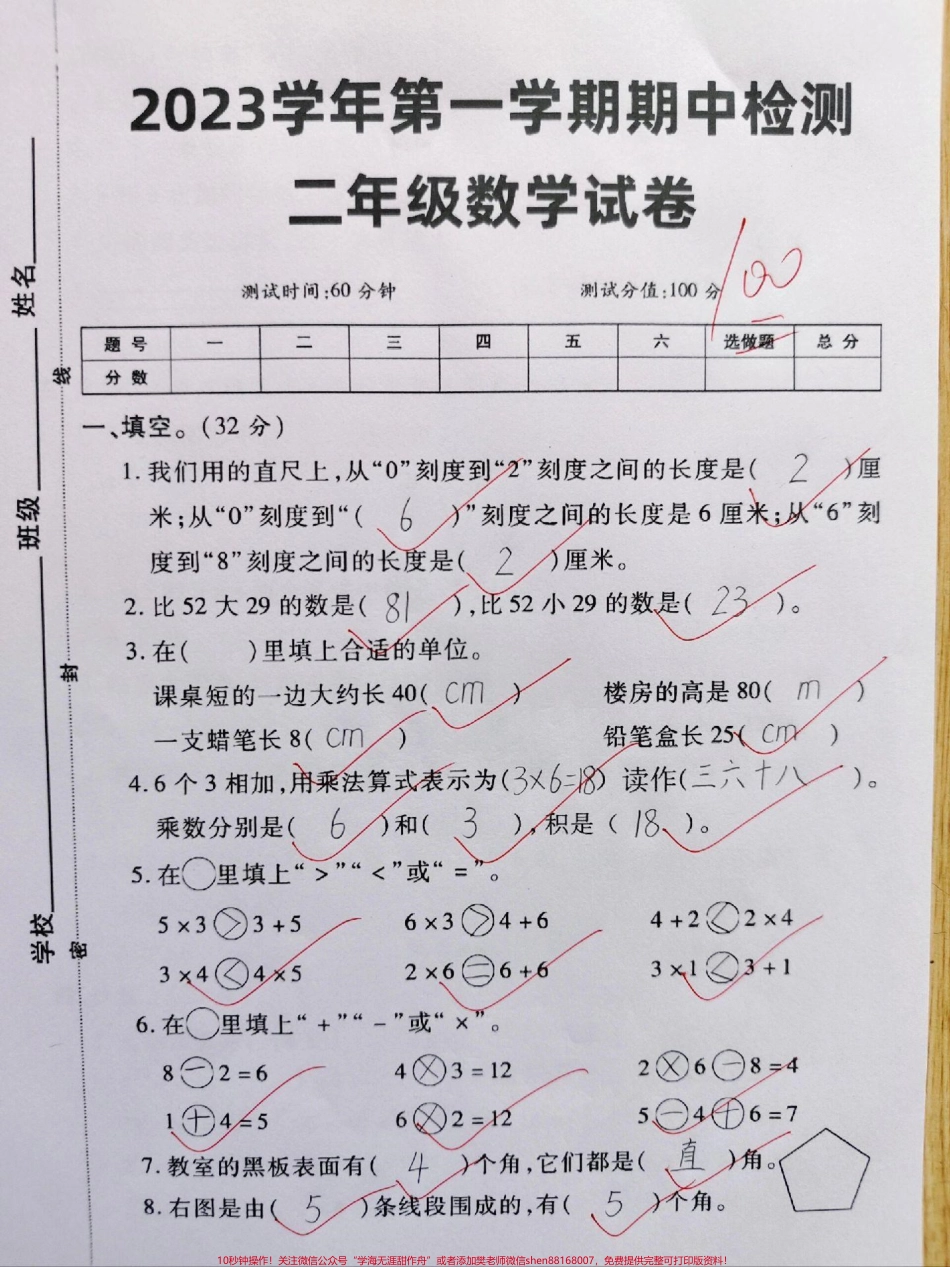 2023学年第一学期期中检测
二年级数学试卷
测试时间:60分钟 测试分值:100分
100
题号 一 二 三 四 五 六 选做题 总分
分数
一、填空。(32分)
1.我们用的直尺上,从“0”刻度到“2”刻度之间的长度是( 2 )厘
米;从“0”刻度到“( 6 )”刻度之间的长度是6厘米;从“6”刻
度到“8”刻度之间的长度是( 2 )厘米。
2.比52大29的数是( 81 ),比52小29的数是( 23 )。
3.在( )里填上合适的单位。
课桌短的一边大约长40( cm ) 楼房的高是80( m )
一支蜡笔长8( cm ) 铅笔盒长25( cm )
4.6个3相加,用乘法算式表示为(3×6=18) 读作(三六十八 )。
乘数分别是( 6 )和( 3 ),积是( 18 )。
5.在○里填上“>”“<”或“=”。
5×3>3+5 6×3>4+6 4+2<2×4
3×4<4×5 2×6=6+6 3×1<3+1
6.在○里填上“+”“-”或“×”。
8-2=6 4×3=12 2×6-8=4
1+4=5 6×2=12 5-4+6=7
7.教室的黑板表面有( 4 )个角,它们都是( 直 )角。
8.右图是由( 5 )条线段围成的,有( 5 )个角。
学校 班级 姓名
密 封 线
10秒钟操作!关注微信公众号“学海无涯甜作舟”或者添加樊老师微信shen88168007,免费提供完整可打印版资料!